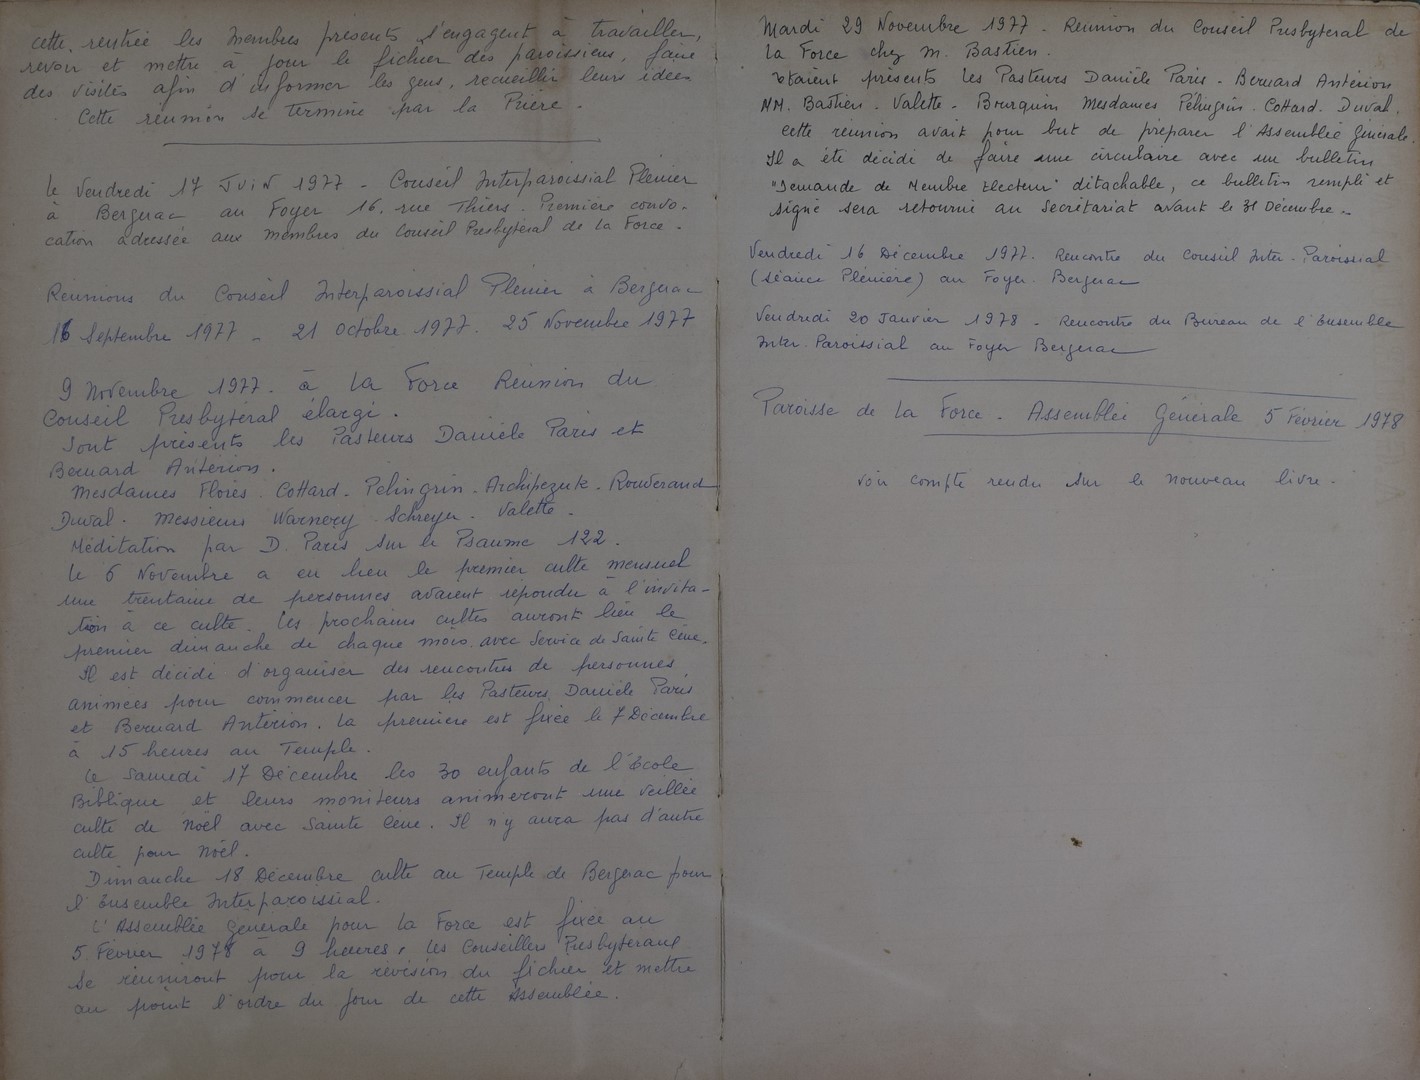 cette rentrée les Membres présents s'engagent à travailler,
revoir et mettre à jour le fichier des paroissiens, faire
des visites afin d'informer les gens, recueillir leurs idées
Cette réunion se termine par la Prière.
Le Vendredi 17 JUIN 1977 - Conseil Interparoissial Plénier
à Bergerac au Foyer 16, rue Thiers. Première convo-
cation adressée aux membres du Conseil Presbytéral de La Force.
Réunions du Conseil Interparoissial Plénier à Bergerac
16 Septembre 1977 - 21 Octobre 1977. 25 Novembre 1977
9 Novembre 1977. à La Force Réunion du
Conseil Presbytéral élargi.
Sont présents les Pasteurs Danièle Paris et
Bernard Antérion.
Mesdames Florès. Cottard. Pélingrin. Archipezuk. Rouderaud
Duval. Messieurs Warnery. Schreyer. Valette.
Méditation par D. Paris sur le Psaume 122.
Le 6 Novembre a eu lieu le premier culte mensuel
une trentaine de personnes avaient répondu à l'invita-
tion à ce culte. Les prochains cultes auront lieu le
premier dimanche de chaque mois avec Service de Sainte Cène.
Il est décidé d'organiser des rencontres de personnes
animées pour commencer par les Pasteurs Danièle Paris
et Bernard Antérion. La première est fixée le 7 Décembre
à 15 heures au Temple.
Le Samedi 17 Décembre les 30 enfants de l'École
Biblique et leurs moniteurs animeront une veillée
culte de Noël avec Sainte Cène. Il n'y aura pas d'autre
culte pour Noël.
Dimanche 18 Décembre culte au Temple de Bergerac pour
l'Ensemble Interparoissial.
L'Assemblée Générale pour La Force est fixée au
5 Février 1978 à 9 heures, les Conseillers Presbytéraux
se réuniront pour la révision du fichier et mettre
au point l'ordre du jour de cette Assemblée.
Mardi 29 Novembre 1977 - Réunion du Conseil Presbytéral de
La Force chez M. Bastien.
Étaient présents les Pasteurs Danièle Paris - Bernard Antérion
MM. Bastien. Valette. Bourquin Mesdames Pélingrin. Cottard. Duval.
Cette réunion avait pour but de préparer l'Assemblée Générale.
Il a été décidé de faire une circulaire avec un bulletin
"Demande de Membre Électeur" détachable, ce bulletin rempli et
signé sera retourné au Secrétariat avant le 31 Décembre.
Vendredi 16 Décembre 1977. Rencontre du Conseil Inter-Paroissial
(séance Plénière) au Foyer. Bergerac
Vendredi 20 Janvier 1978 - Rencontre du Bureau de l'Ensemble
Inter-Paroissial au Foyer Bergerac
Paroisse de La Force. Assemblée Générale 5 Février 1978
voir compte rendu sur le nouveau livre.